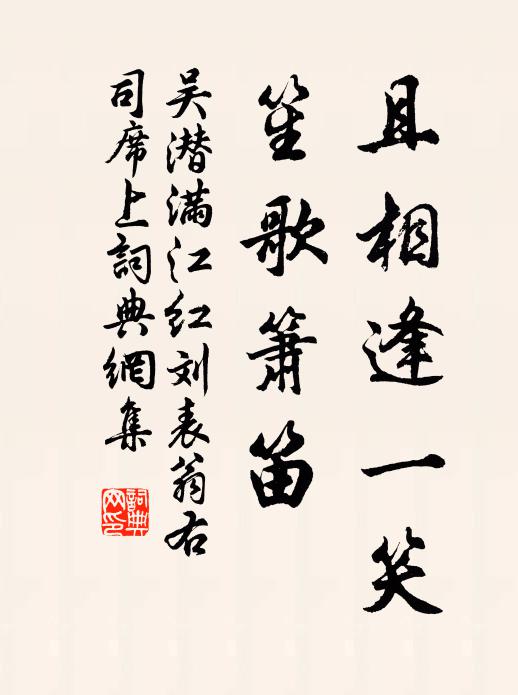 且相逢一笑
笙歌箫笛
吴潜满江红刘表翁右
司席上詞典網集
詞典网印